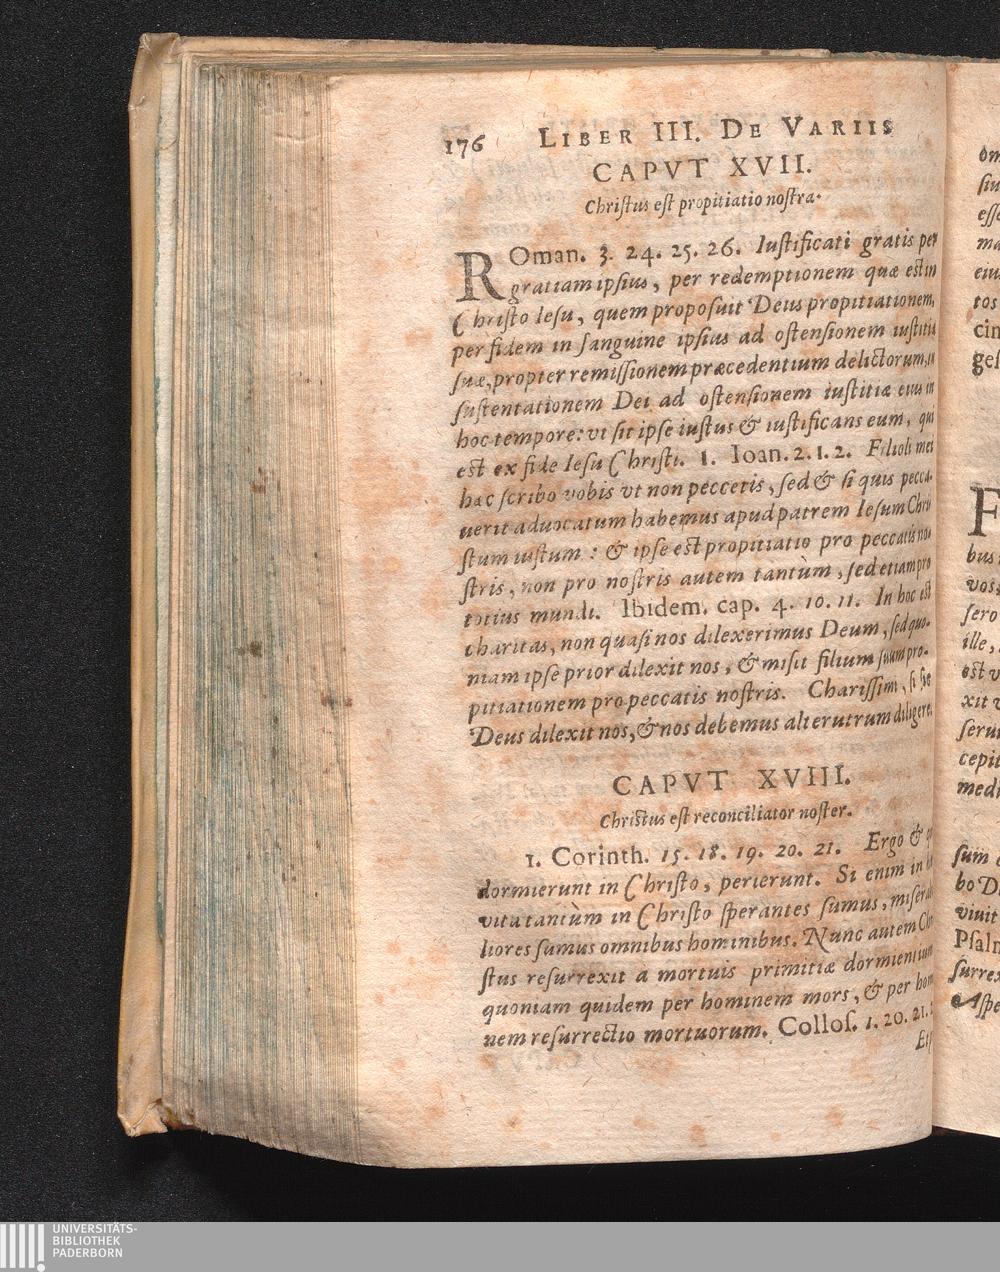 176 LIBER III. DE VARIIS
CAPVT XVII.
Christus est propitiatio nostra.
ROman. 3. 24. 25. 26. Iustificati gratis per
gratiam ipsius, per redemptionem quæ est in
Christo Iesu, quem proposuit Deus propitiationem,
per fidem in sanguine ipsius ad ostensionem iustitiæ
suæ, propter remissionem præcedentium delictorum, in
sustentationem Dei ad ostensionem iustitiæ eius in
hoc tempore: vt sit ipse iustus & iustificans eum, qui
est ex fide Iesu Christi. 1. Ioan. 2. 1. 2. Filioli mei
hæc scribo vobis vt non peccetis, sed & si quis pecca-
uerit aduocatum habemus apud patrem Iesum Chri
stum iustum: & ipse est propitiatio pro peccatis no-
stris, non pro nostris autem tantùm, sed etiam pro
totius mundi. Ibidem. cap. 4. 10. 11. In hoc est
charitas, non quasi nos dilexerimus Deum, sed quo-
niam ipse prior dilexit nos, & misit filium suum pro-
pitiationem pro peccatis nostris. Charissimi, si sic
Deus dilexit nos, & nos debemus alterutrum diligere.
CAPVT XVIII.
Christus est reconciliator noster.
1. Corinth. 15. 18. 19. 20. 21. Ergo &
dormierunt in Christo, perierunt. Si enim in
vita tantùm in Christo sperantes sumus, misera
liores sumus omnibus hominibus. Nunc autem Chri
stus resurrexit a mortuis primitiæ dormientium
quoniam quidem per hominem mors, & per homi
nem resurrectio mortuorum. Collos. 1. 20. 21.
Et
om
siu
esse
ma
eius
tos
cin
ges
F
bus
vos,
sero
ille,
est v
xit v
serui
cepit
medi
sum
bo D
viuit
Psalm
surrex
Aspe
UNIVERSITÄTS-
BIBLIOTHEK
PADERBORN